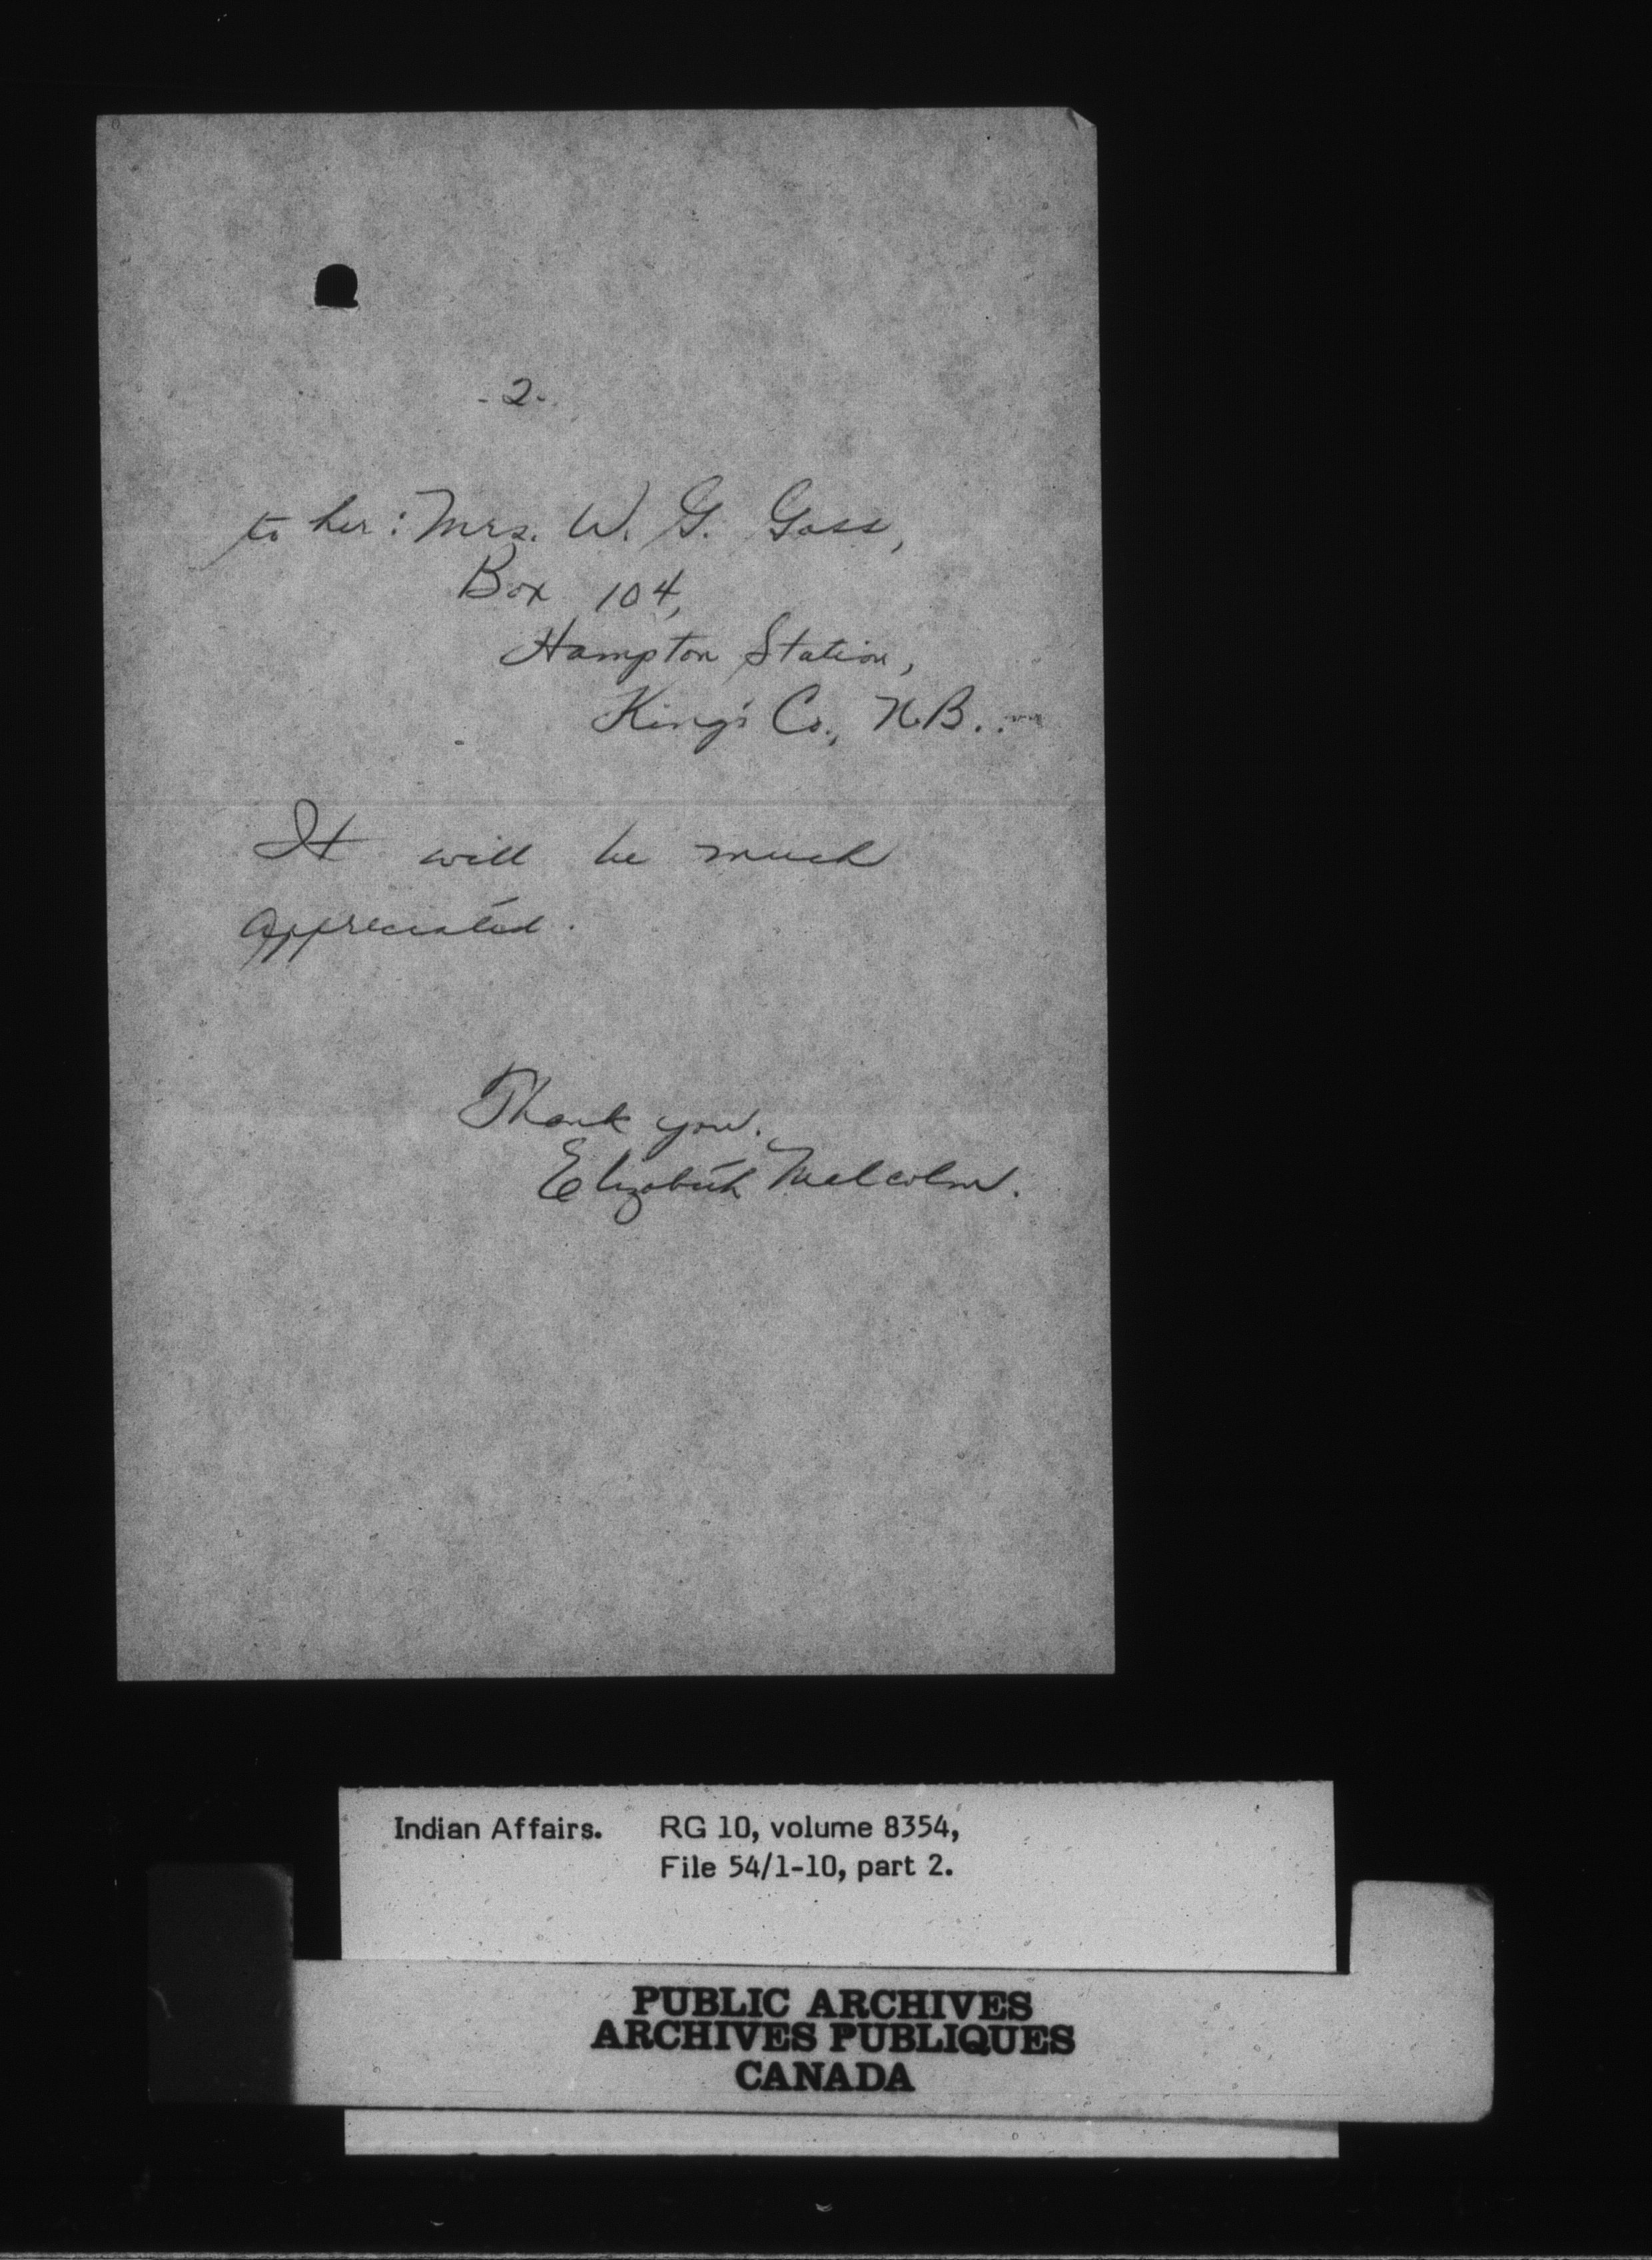 - 2 -
to her: Mrs. W. G. Goss,
Box 104,
Hampton Station,
King's Co., N.B..
It will be much
appreciated.
Thank you.
Elizabeth Malcolm.
Indian Affairs. RG 10, volume 8354,
File 54/1-10, part 2.
PUBLIC ARCHIVES
ARCHIVES PUBLIQUES
CANADA